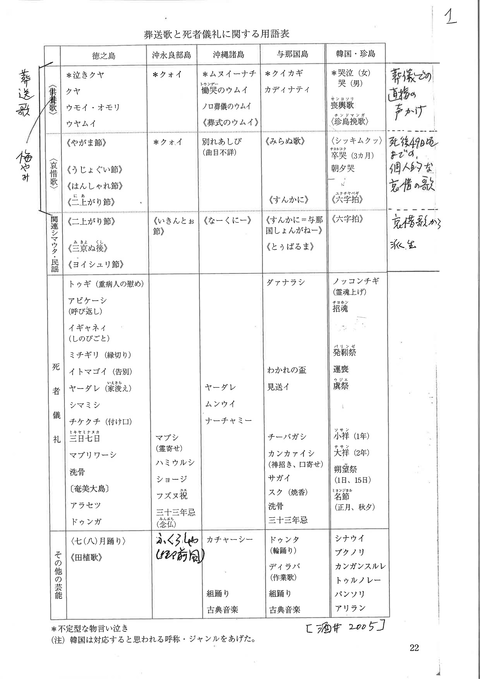 1
葬送歌と死者儀礼に関する用語表
徳之島 沖永良部島 沖縄諸島 与那国島 韓国・珍島
葬送歌
悔やみ
(供養歌)
*泣きクヤ *クォイ *ムヌイーナチ *クイカギ *哭泣(女)
クヤ 慟哭のウムイ カディナティ 哭(男)
ウモイ・オモリ ノロ葬儀のウムイ 喪輿歌
ウヤムイ 《葬式のウムイ》 《珍島挽歌》
葬儀での
直接の
声かけ
(哀惜歌)
《やがま節》 *クォイ 別れあしび 《みらぬ歌》 〈シッキムクッ〉
(曲目不詳) 卒哭(3カ月)
《うじょぐい節》 朝夕哭
《はんしゃれ節》
《二上がり節》 《すんかに》 《六字拍》
死後49日頃
までの、
個人的な
哀惜の歌
関連シマウタ・民謡
《二上がり節》 《いきんとぉ節》 《なーくにー》 《すんかに=与那国しょんがねー》 《六字拍》
《三京ぬ後》
《ヨイシュリ節》 《とぅばるま》
哀惜歌から
派生
死者儀礼
トゥギ(重病人の慰め) ダァナラシ ノッコンチギ
(霊魂上げ)
アビケーシ 招魂
(呼び返し)
イギャネィ
(しのびごと)
ミチギリ(縁切り) 発靷祭
イトマゴイ(告別) わかれの盃 運喪
ヤーダレ(家浚え) ヤーダレ 見送イ 虞祭
シマミシ ムンウイ
チケクチ(付け口) ナーチャミー
三日七日 マブシ チーバガシ 小祥(1年)
(霊寄せ)
マブリワーシ ハミウルシ カンカァイシ 大祥(2年)
(神招き、口寄せ)
洗骨 ショージ サガイ 朔望祭
(1日、15日)
〔奄美大島〕 フズヌ祝 スク(焼香) 名節
(正月、秋夕)
アラセツ 三十三年忌 洗骨
ドゥンガ (念仏) 三十三年忌
その他の芸能
〈七(八)月踊り〉 カチャーシー ドゥンタ シナウイ
(輪踊り)
《田植歌》 ディラバ プクノリ
(作業歌) カンガンスルレ
トゥルノレー
組踊り 組踊り パンソリ
古典音楽 古典音楽 アリラン
*不定型な物言い泣き
(注) 韓国は対応すると思われる呼称・ジャンルをあげた。
[酒井 2005]
22